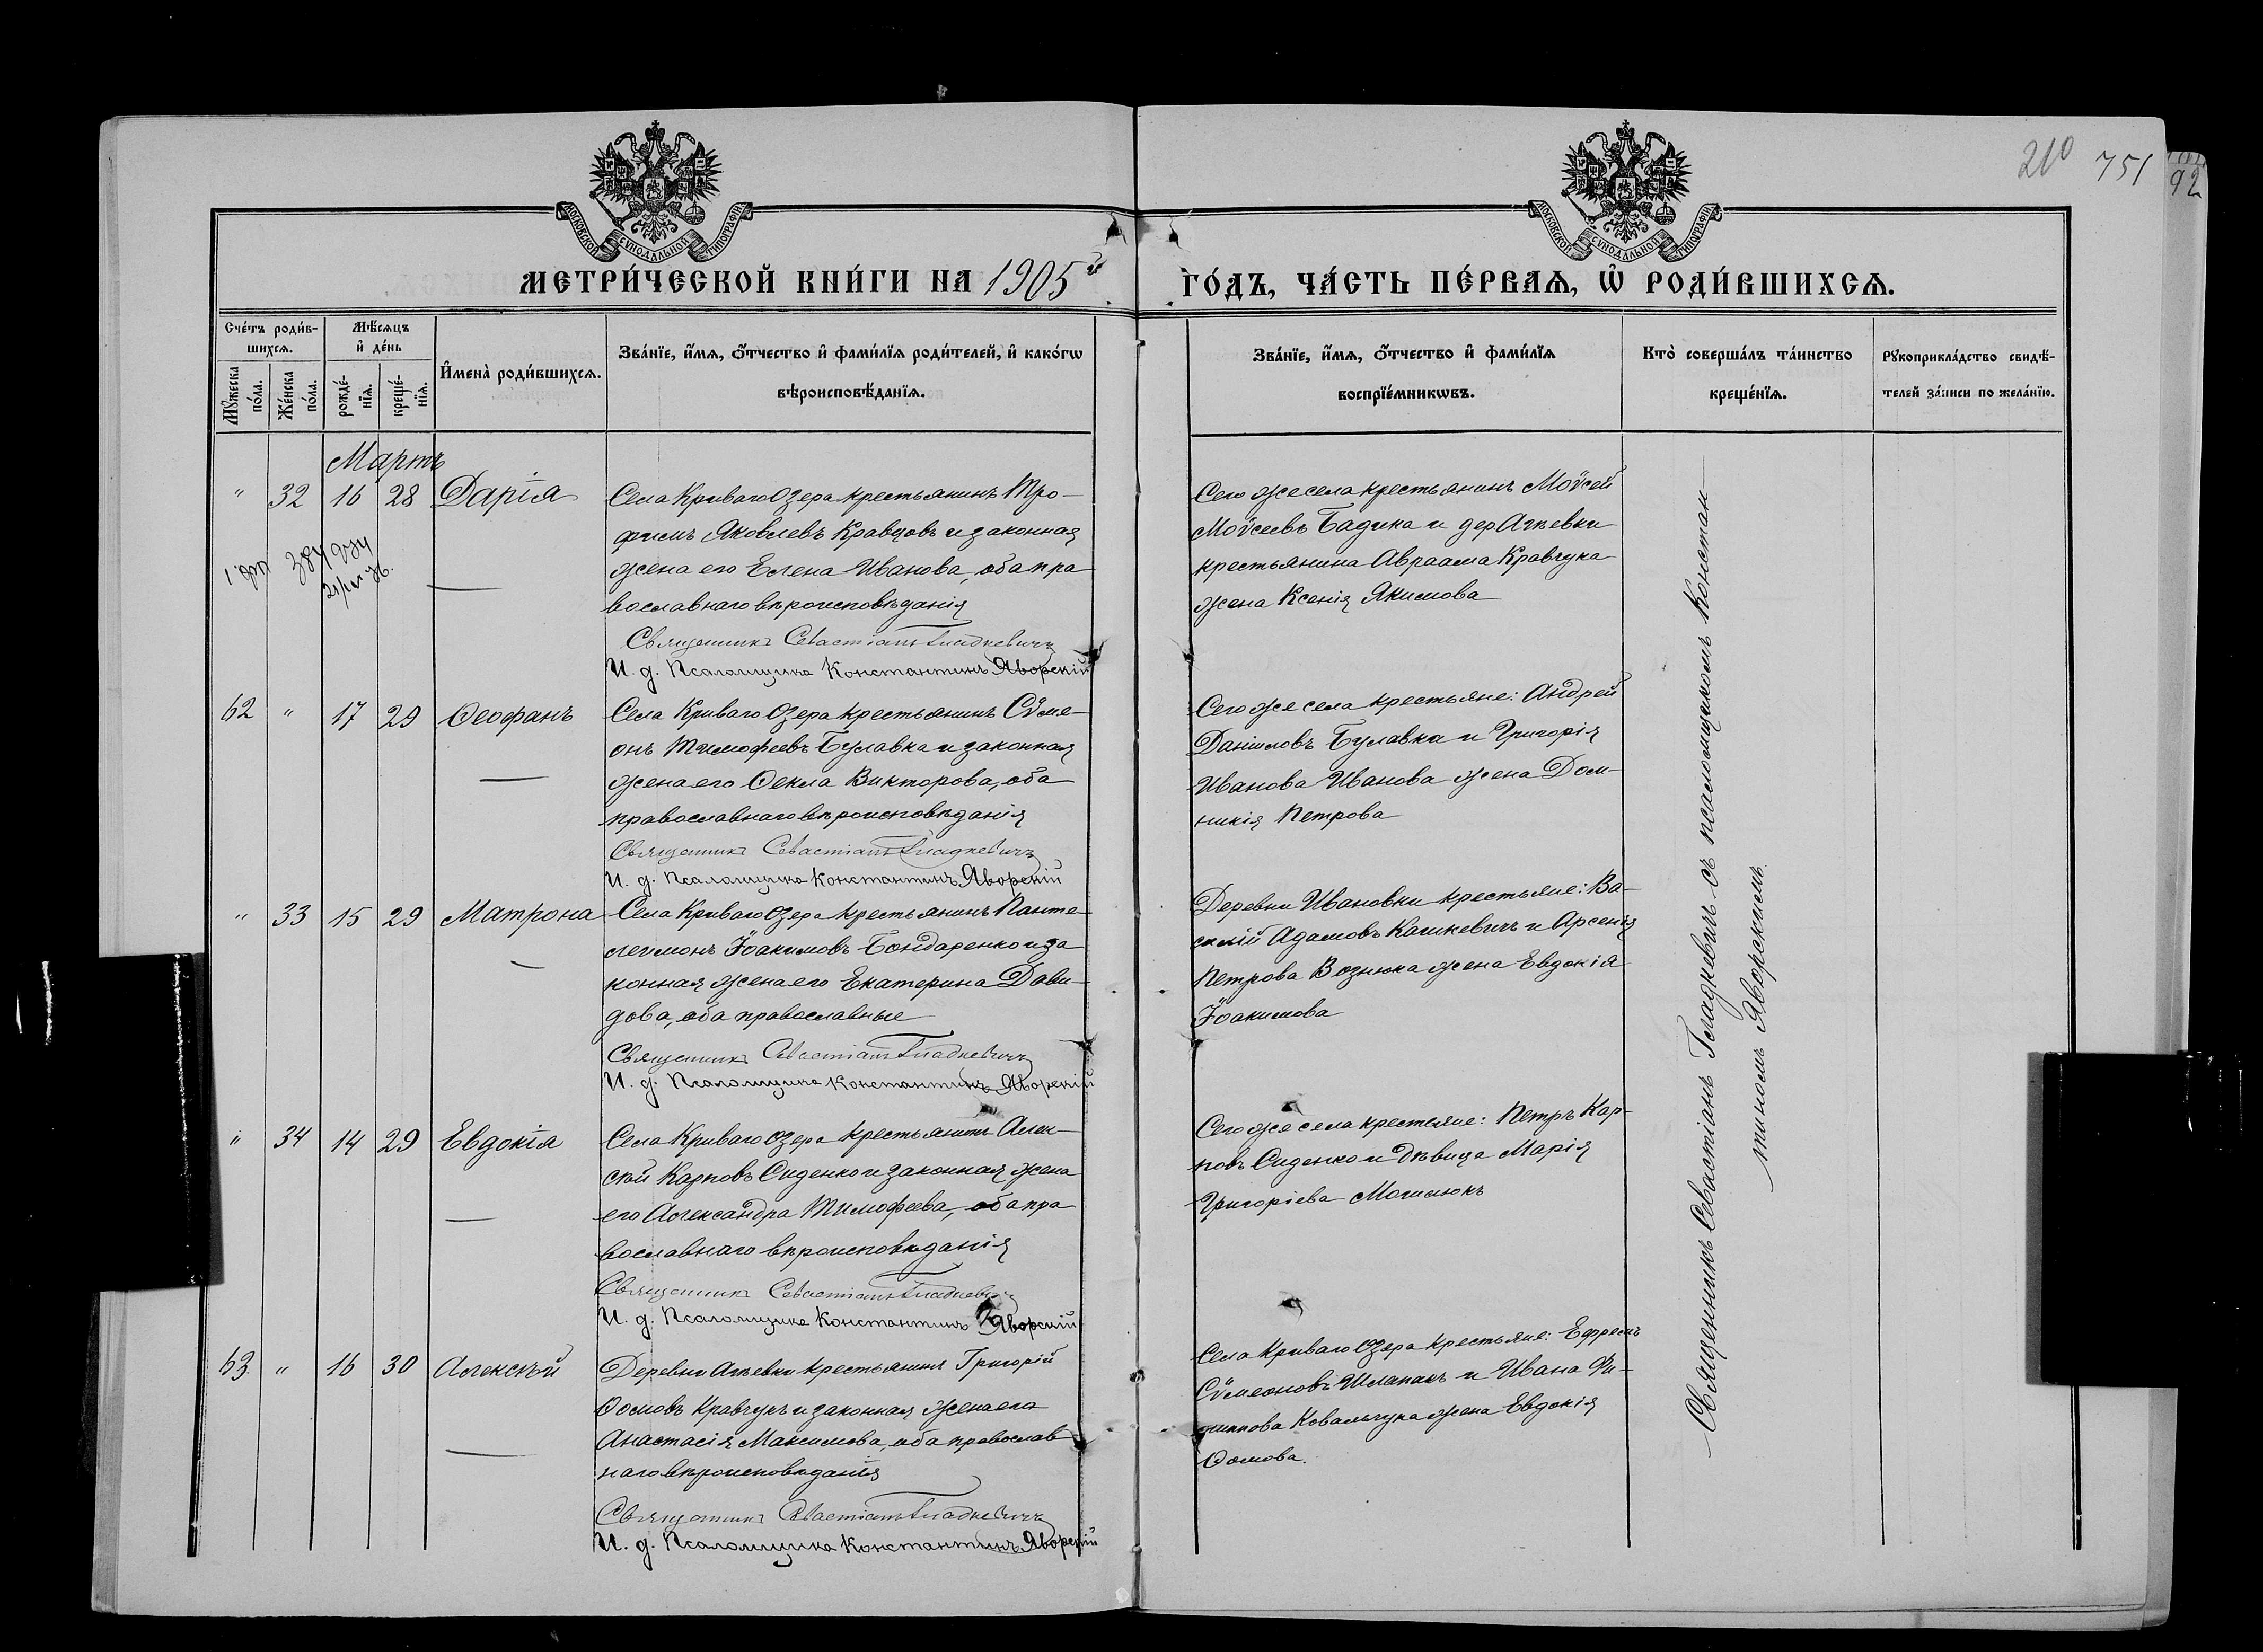 210 751
92
МОСКОВСКОЙ СѴНОДАЛЬНОЙ ТИПОГРАФІИ
МОСКОВСКОЙ СѴНОДАЛЬНОЙ ТИПОГРАФІИ
МЕТРИ́ЧЕСКОЙ КНИ́ГИ НА 1905й ГО́ДЪ, ЧА́СТЬ ПЕ́РВАѦ, Ѡ҆ РОДИ́ВШИХСѦ.
Сче́тъ роди́в-
шихсѧ.
Мꙋ́жеска по́ла.
Же́нска по́ла.
Мѣ́сѧцъ
и҆ де́нь
рожде́-
нїѧ.
креще́-
нїѧ.
И҆мена̀ роди́вшихсѧ.
Зва́нїе, и҆́мѧ, ѻ҆́тчество и҆ фами́лїѧ роди́телей, и҆ како́гѡ
вѣроисповѣ́данїѧ.
Зва́нїе, и҆́мѧ, ѻ҆́тчество и҆ фами́лїѧ
воспрїе́мникѡвъ.
Кто̀ соверша́лъ та́инство
креще́нїѧ.
Рꙋкоприкла́дство свидѣ́-
телей за́писи по жела́нїю.
Мартъ
" 32 16 28 Дарія
Села Криваго Озера крестьянинъ Тро-
фимъ Яковлевъ Кравцовъ и законная
жена его Елена Иванова, оба пра
вославнаго вѣроисповѣданія
Священникъ Севастіанъ Гладкевичъ
И. д. Псаломщика Константинъ Яворскій
Сего же села крестьянинъ Моѵсей
Моѵсеевъ Бадика и дер Агѣевки
крестьянина Авраама Кравчука
жена Ксенія Якимова
62 " 17 29 Ѳеофанъ
Села Криваго Озера крестьянинъ Сѵме-
онъ Тимофеевъ Булавка и законная
жена его Ѳекла Викторова, оба
православнаго вѣроисповѣданія
Священникъ Севастіанъ Гладкевичъ
И. д. Псаломщика Константинъ Яворскій
Сего же села крестьяне: Андрей
Даніиловъ Булавка и Григорія
Иванова Иванова жена Дом-
никія Петрова
" 33 15 29 Матрона
Села Криваго Озера крестьянинъ Панте-
леимонъ Іоакимовъ Бондаренко и за
конная жена его Екатерина Дави-
дова, оба православные
Священникъ Севастіанъ Гладкевичъ
И. д. Псаломщика Константинъ Яворскій
Деревни Ивановки крестьяне: Ва-
силій Адамовъ Кашкевичъ и Арсенія
Петрова Вознюка жена Евдокія
Іоакимова
" 34 14 29 Евдокія
Села Криваго Озера крестьянинъ Алек-
сѣй Карповъ Сиденко и законная жена
его Александра Тимофеева, оба пра
вославнаго вѣроисповѣданія
Священникъ Севастіанъ Гладкевичъ
И. д. Псаломщика Константинъ Яворскій
Сего же села крестьяне: Петръ Кар-
повъ Сиденко и дѣвица Марія
Григоріева
63 " 16 30 Алексѣй
Деревни Агѣевки крестьянинъ Григорій
Ѳомовъ Кравчукъ и законная жена его
Анастасія Максимова, оба православ
наго вѣроисповѣданія
Священникъ Севастіанъ Гладкевичъ
И. д. Псаломщика Константинъ Яворскій
Села Криваго Озера крестьяне: Ефремъ
Сѵмеоновъ Шлапакъ и Ивана Фи-
липпова Ковальчука жена Евдокія
Ѳомова.
Священникъ Севастіанъ Гладкевичъ съ псаломщикомъ Констан-
тиномъ Яворскимъ.